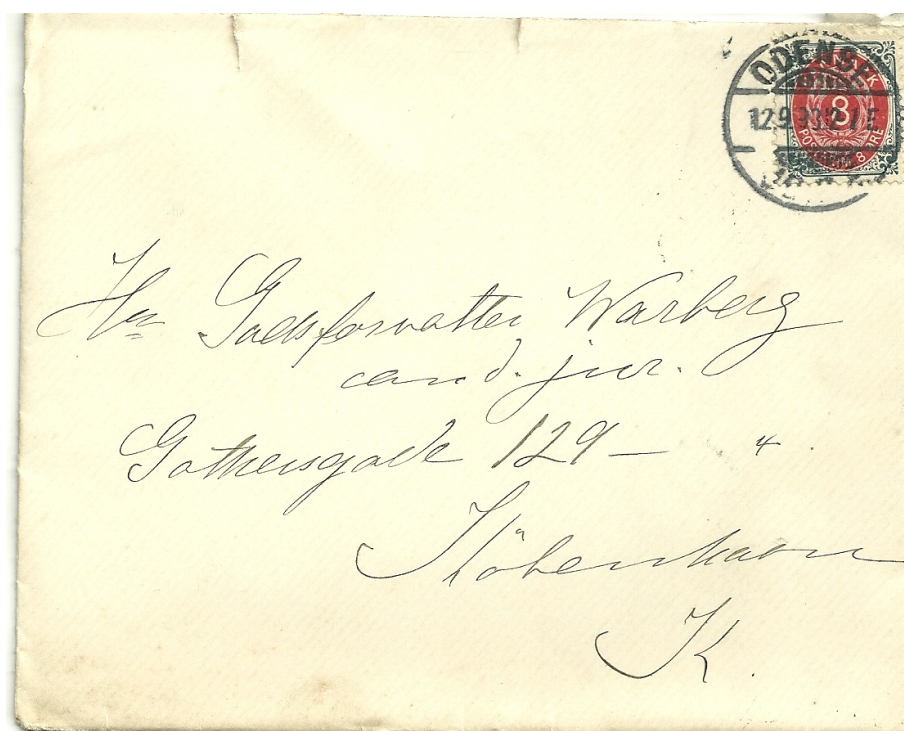 ODENSE
12.9.93.2-1 E
DANMARK
8
POSTFRIM 8 ØRE
Hr Godsforvalter Warberg
cand. jur.
Gothersgade 129 – 4.
Köbenhavn
K.